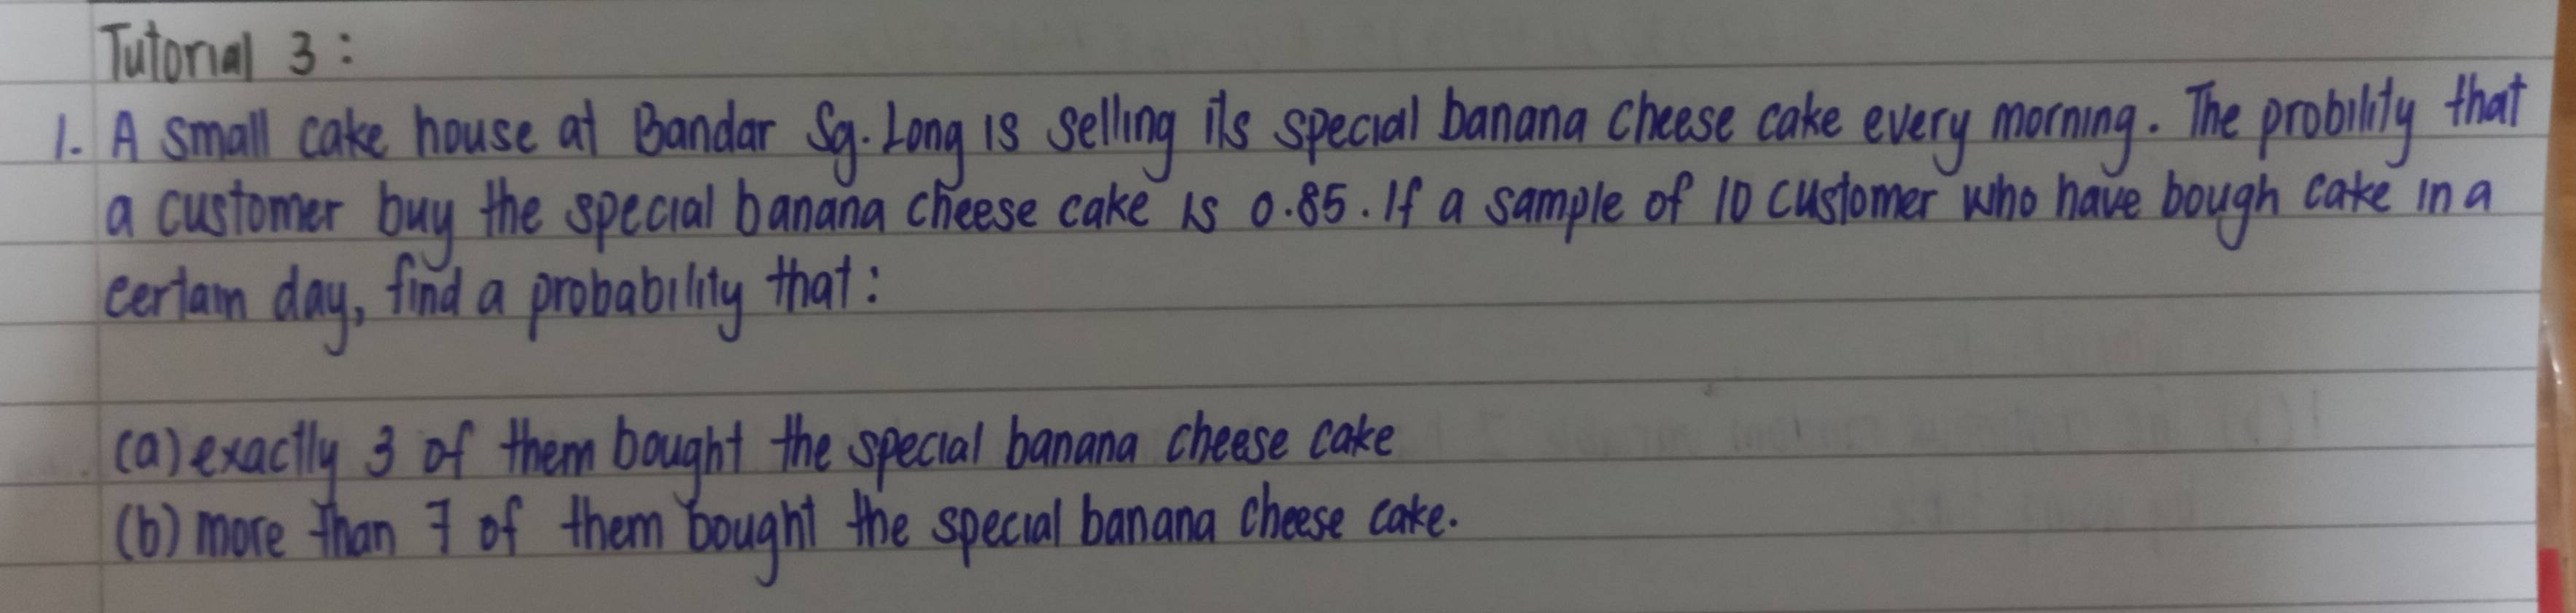 Tutorial 3 :
1. A small cake house at Bandar Sg. Long is selling its special banana cheese cake every morning. The probility that
a customer buy the special banana cheese cake is 0.85. If a sample of 10 customer who have bough cake in a
certain day, find a probability that :
(a) exactly 3 of them bought the special banana cheese cake
(b) more than 7 of them bought the special banana cheese cake.